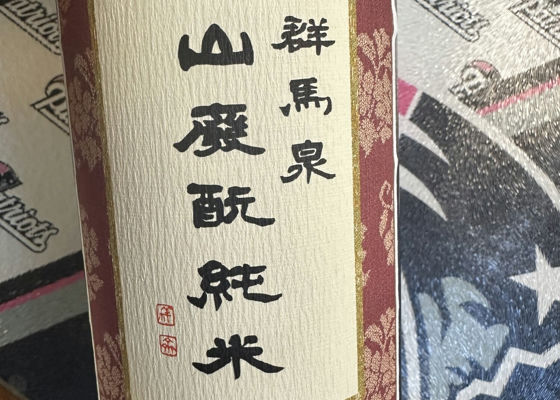 群馬泉
山廃酛純米
Patriots
Patriots